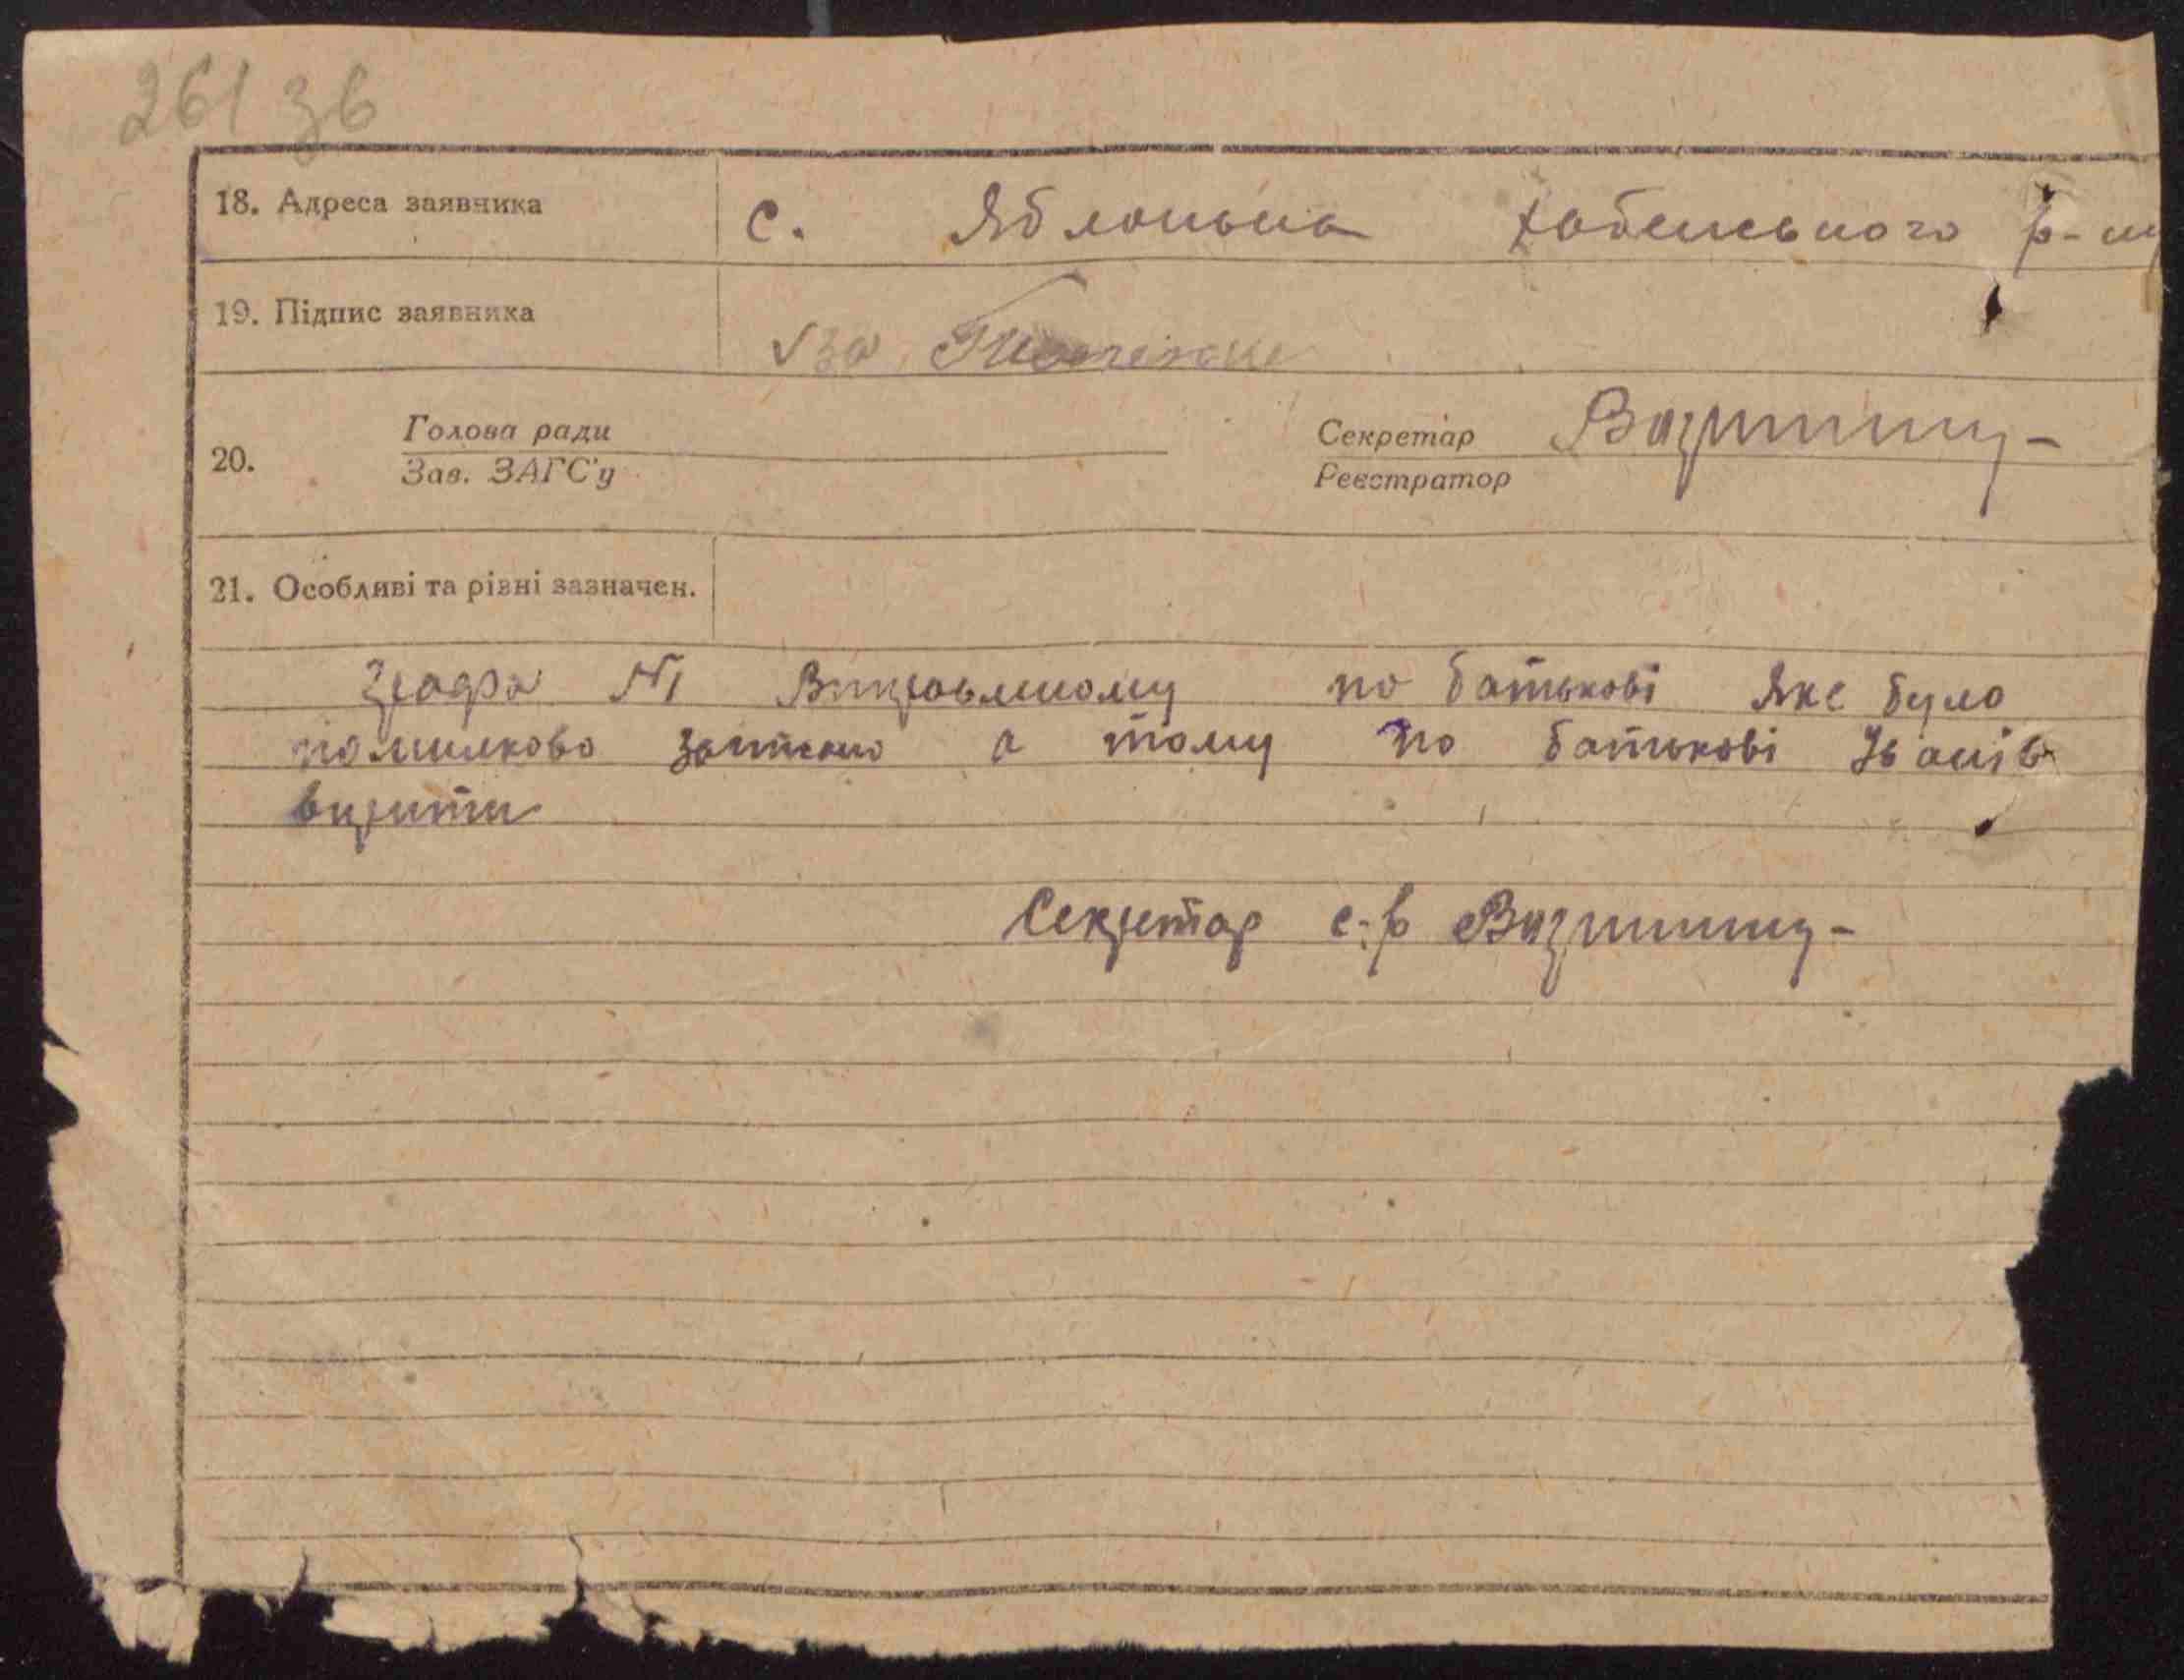 261 зв
18. Адреса заявника с. Яблонька Хабенського р-ну
19. Підпис заявника за
20. Голова ради Секретар
Зав. ЗАГС'у Реєстратор
21. Особливі та різні зазначен.
Графа №1 по батькові яке було
помилково записано а тому по батькові Іванів
вірити
Секретар с-р